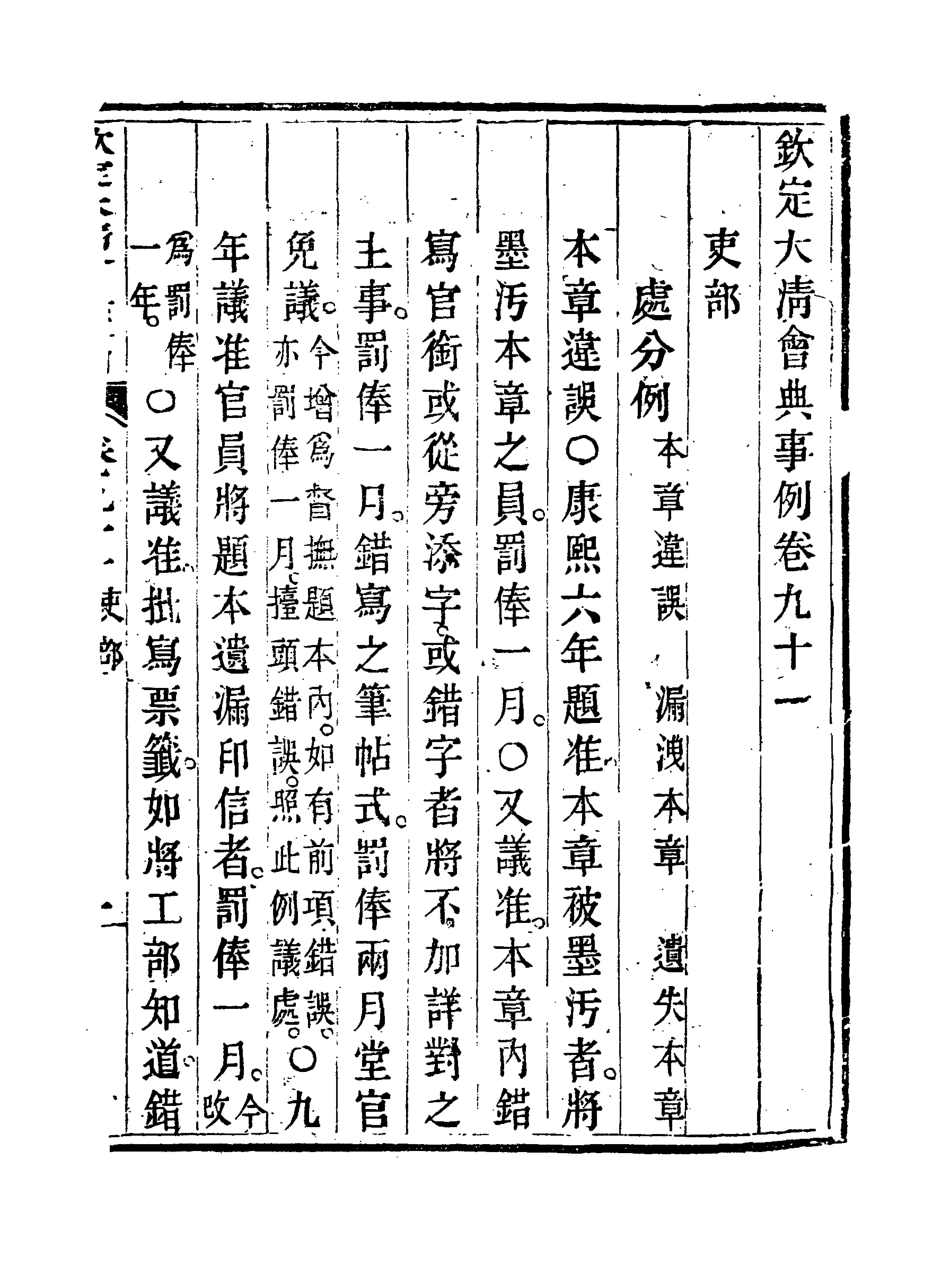 欽定大淸會典事例卷九十一
吏部
處分例 本章違誤 漏洩本章 遺失本章
本章違誤○康熙六年題准本章被墨汚者。將
墨汚本章之員。罰俸一月。○又議准。本章內錯
寫官銜或從旁添字。或錯字者將不加詳對之
主事。罰俸一月。錯寫之筆帖式。罰俸兩月堂官
免議。今增爲督撫題本內。如有前項錯誤。亦罰俸一月。擡頭錯誤。照此例議處。○九
年議准官員將題本遺漏印信者。罰俸一月。今改
爲罰俸一年。○又議准。批寫票籤。如將工部知道。錯